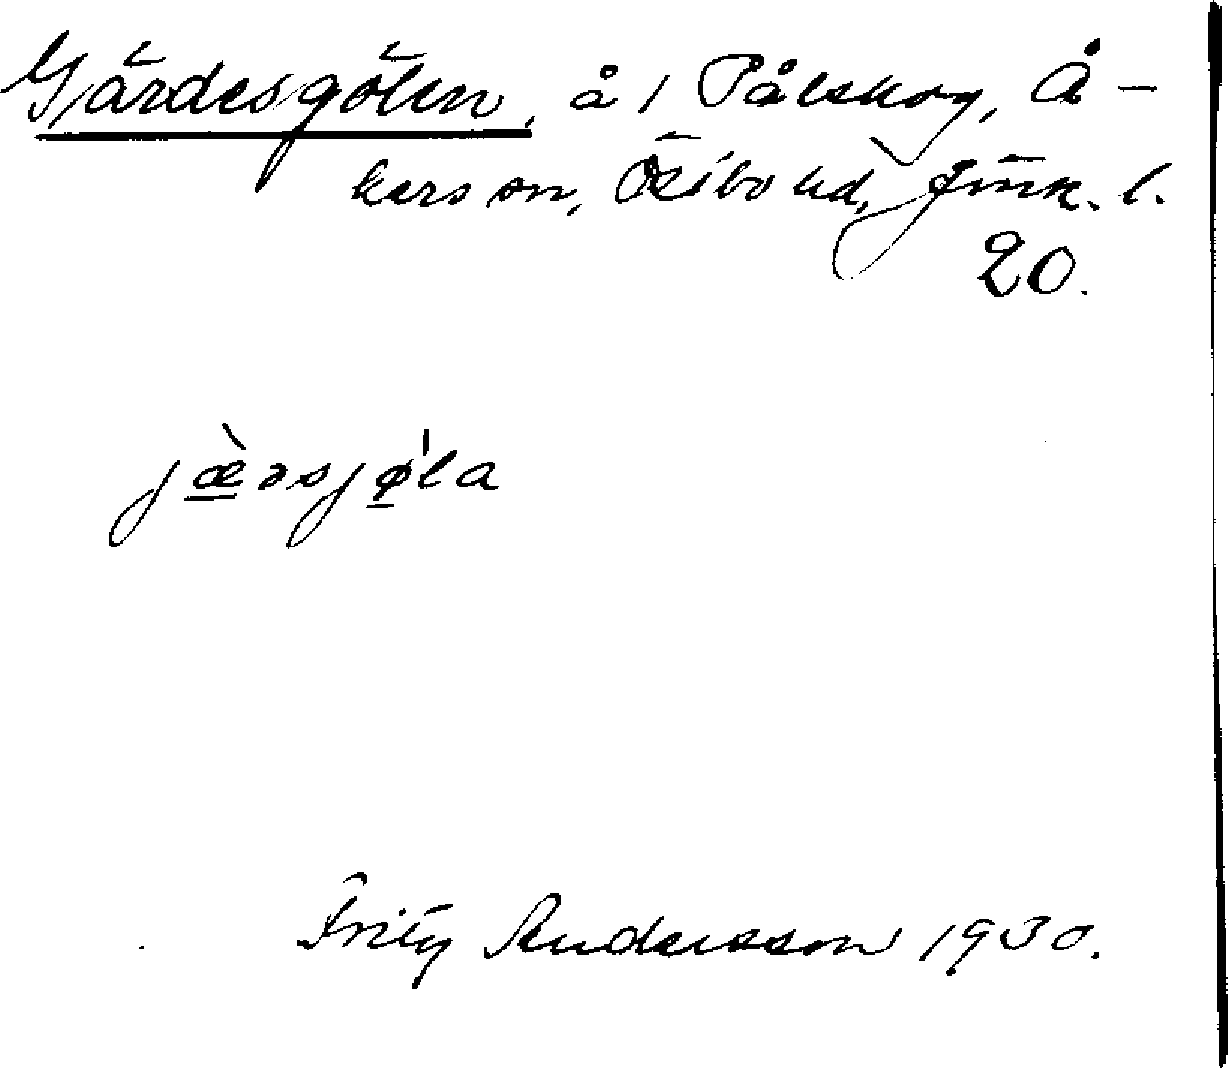 Gärdesgölen, å 1 Pålskog, Å-
kers sn, Östbo hd, Jönk. l.
20.
jæ̀rəsjø̍la
Fritz Andersson 1930.